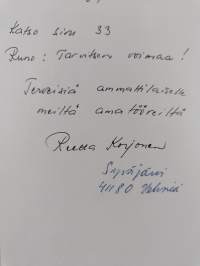 Katso sivu 33
Runo: Tarvitsen voimaa!
Terveisiä ammattilaisele
meiltä amatööreiltä
Korjonen
Syväjärvi
41180 Vehniä